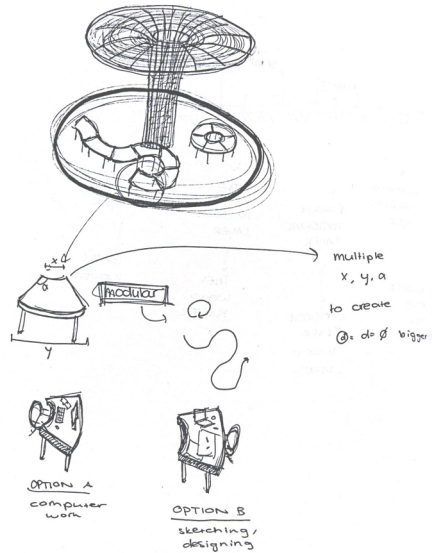 x
a
y
modular
multiple
x, y, a
to create
d = d = Ø bigger
OPTION A
computer
work
OPTION B
sketching,
designing